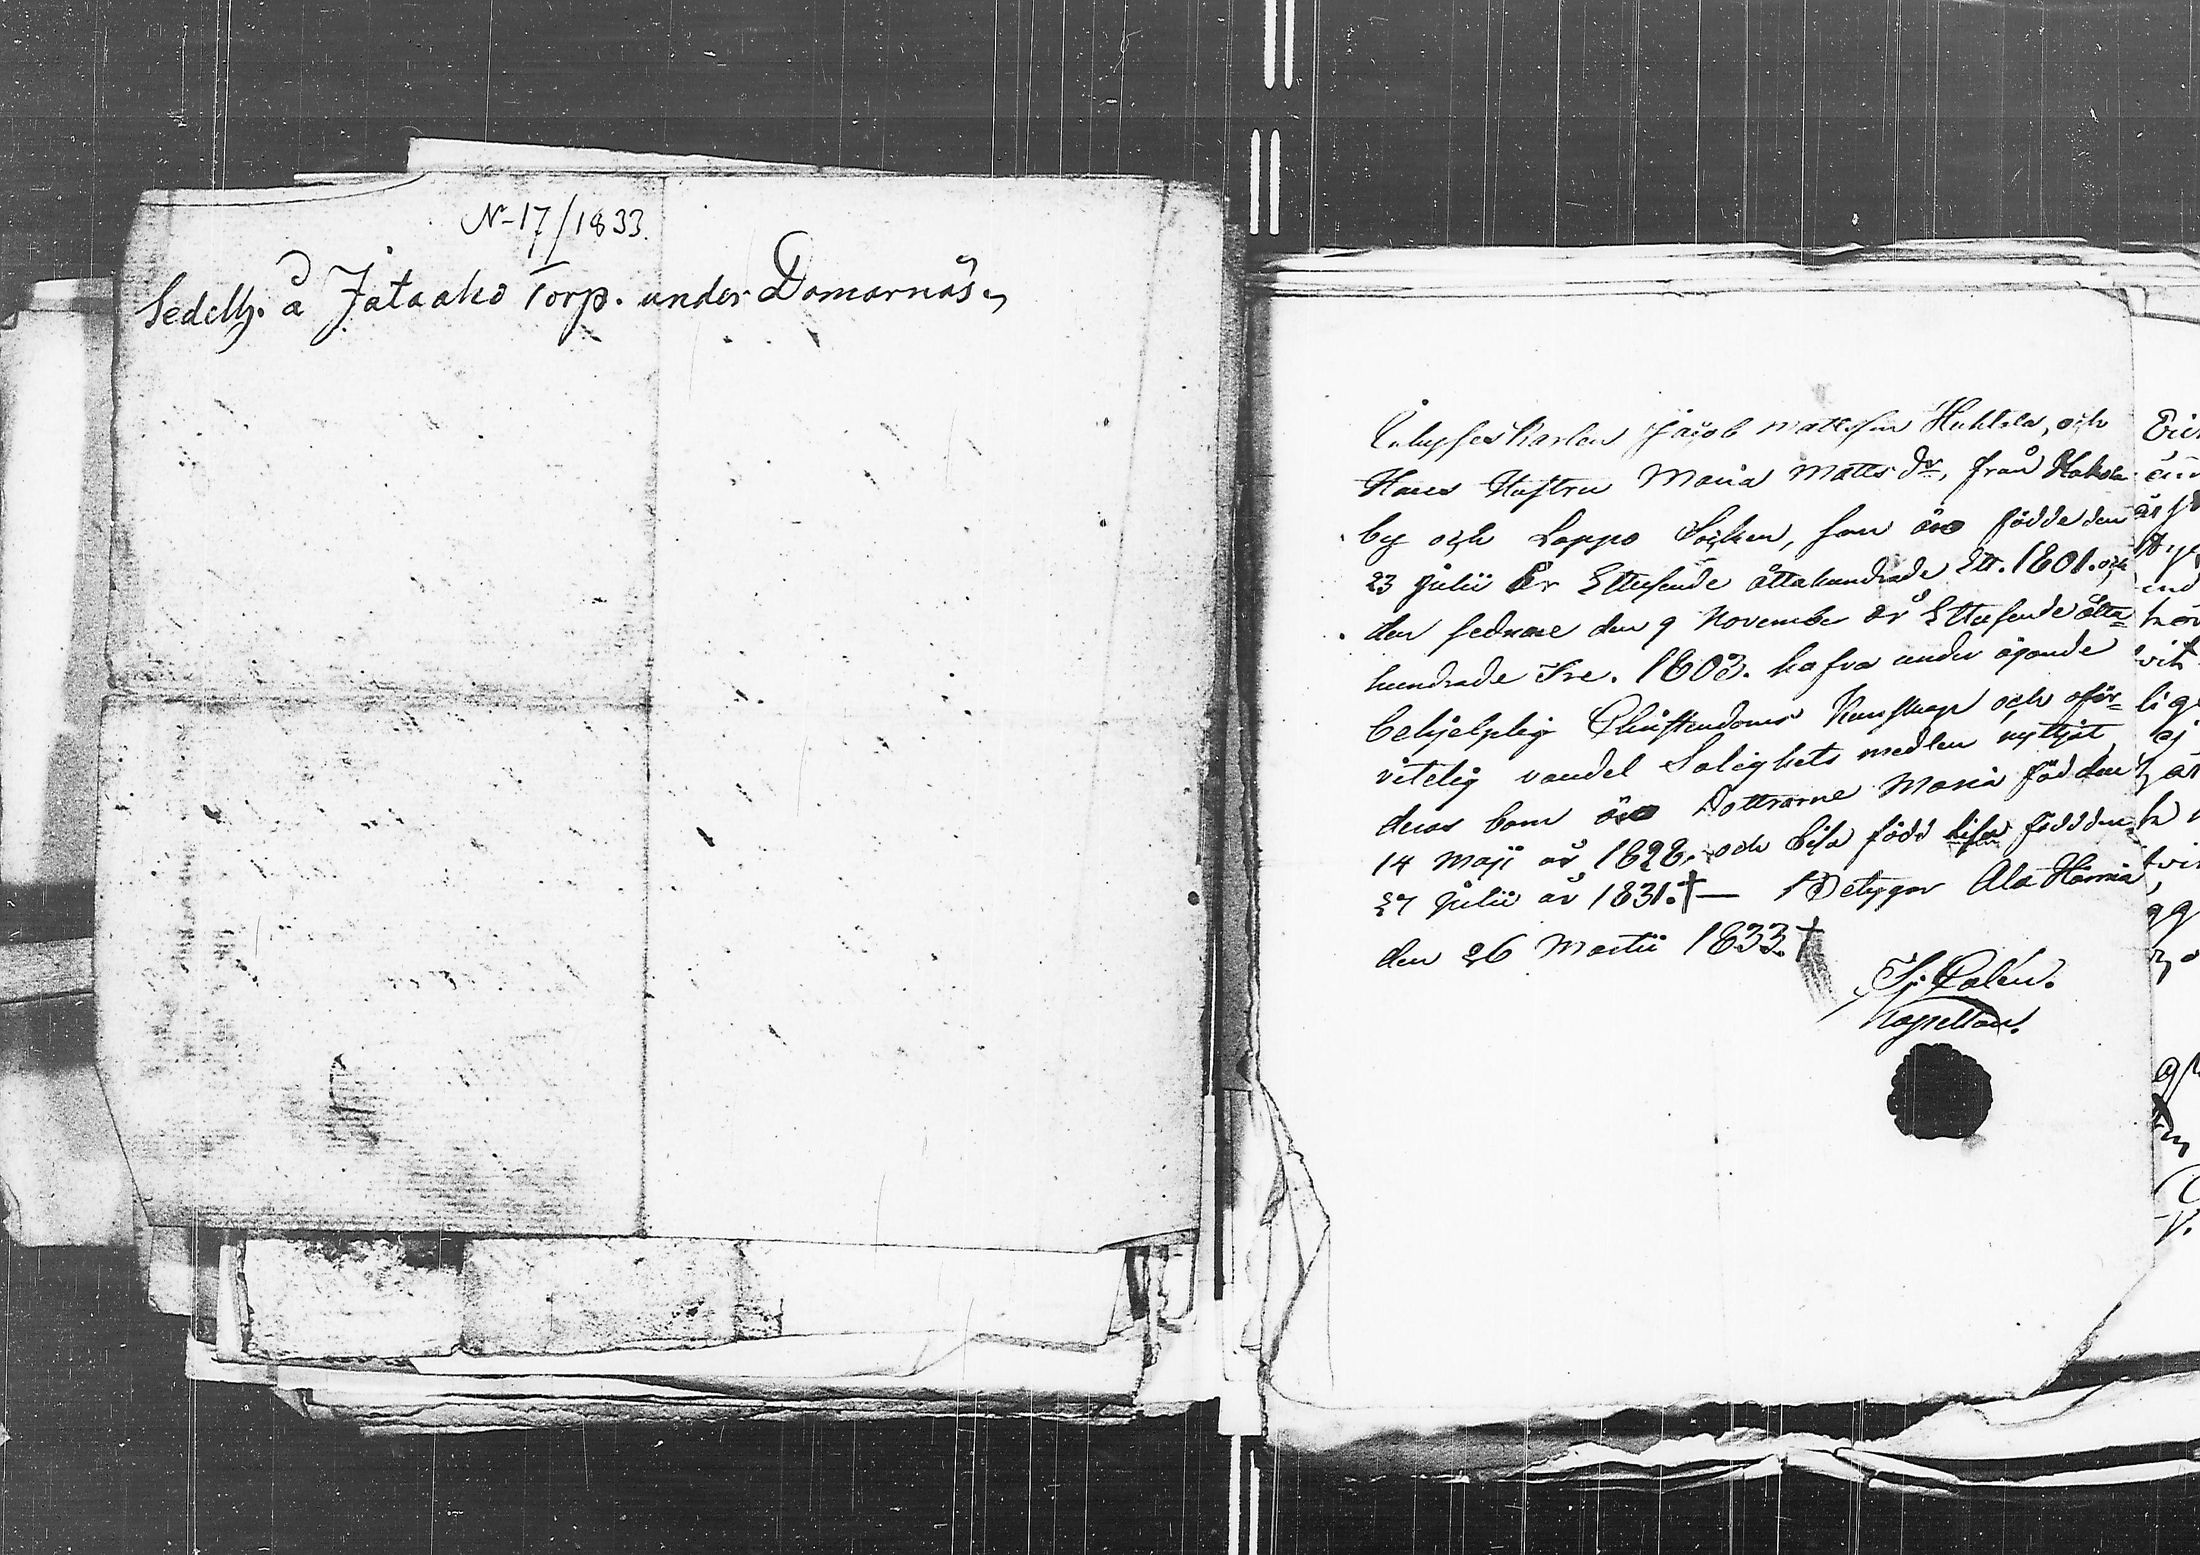 N-17/1833.
Sedelh. å Jataako Torp. under Domarnäs.
Inhyses Karlen Jacob Mattsson Huhtala, och
Hans Hustru Maria Matts dr, från
by och Lappo Socken, som äro födde den
23 Julii År Ettusende åttahundrade Ett. 1801. och
den sednare den 9 November år Ettusende åtta=
hundrade Tre. 1803. hafva under ägande
behjelplig Christendoms Kunskap och oför=
vitelig vandel Salighets medlen nyttjat
deras barn äro Döttrarne Maria född den
14 Maji år 1828, och Lisa född Lisa född den
27 Julii år 1831. — Betygar Ala Härmä
den 26 Martii 1833.
Kapellan.